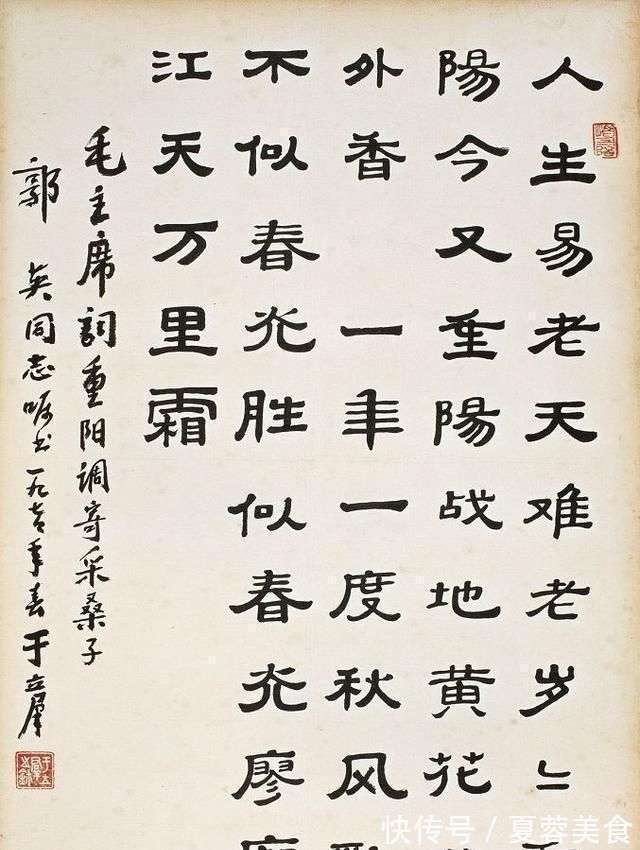 人生易老天难老岁〻
陽今又重陽战地黄花
外香 一年一度秋风
不似春光胜似春光廖
江天万里霜
毛主席詞重阳调寄采桑子
郭英同志嘱书一九七七年春于立群
快传号 / 夏蓉美食